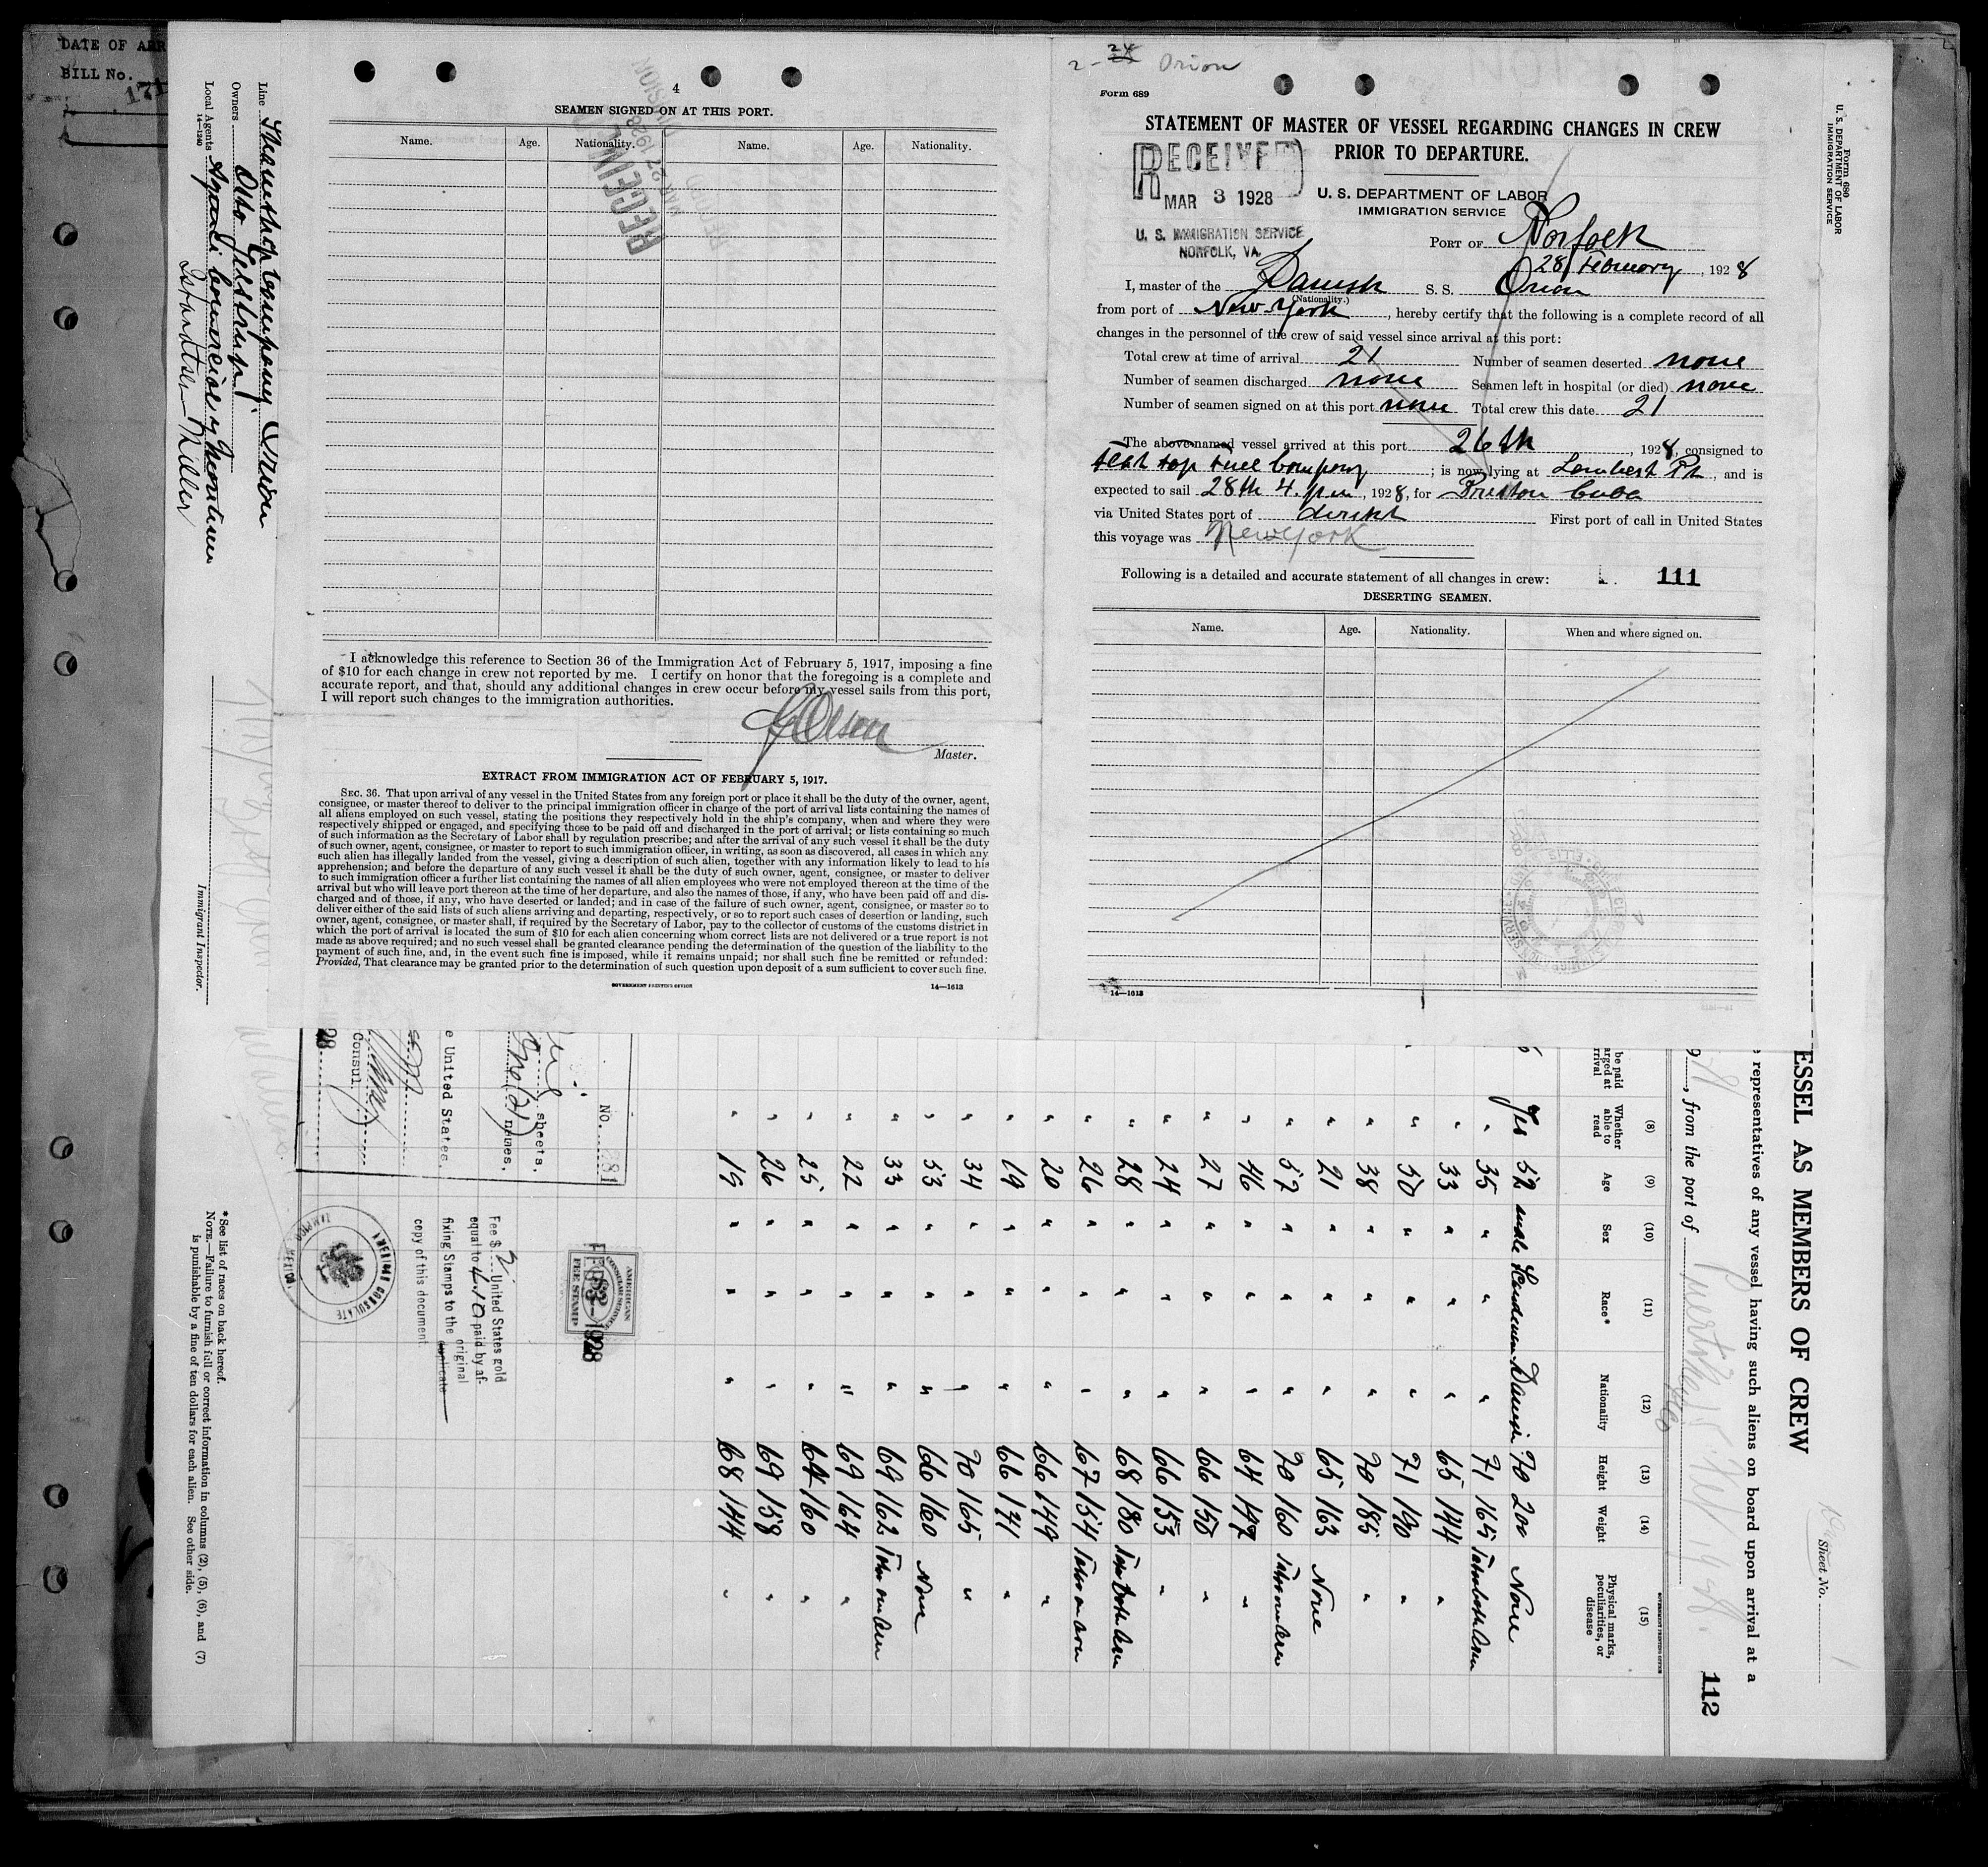 DATE OF ARR
BILL No.
171
Line Steamship Company. Orion
Owners Otto
Local Agents
14—1240
Immigrant Inspector.
4
SEAMEN SIGNED ON AT THIS PORT.
Name. Age. Nationality. Name. Age. Nationality.
I acknowledge this reference to Section 36 of the Immigration Act of February 5, 1917, imposing a fine
of $10 for each change in crew not reported by me. I certify on honor that the foregoing is a complete and
accurate report, and that, should any additional changes in crew occur before my vessel sails from this port,
I will report such changes to the immigration authorities.
Olsen
Master.
EXTRACT FROM IMMIGRATION ACT OF FEBRUARY 5, 1917.
SEC. 36. That upon arrival of any vessel in the United States from any foreign port or place it shall be the duty of the owner, agent,
consignee, or master thereof to deliver to the principal immigration officer in charge of the port of arrival lists containing the names of
all aliens employed on such vessel, stating the positions they respectively hold in the ship's company, when and where they were
respectively shipped or engaged, and specifying those to be paid off and discharged in the port of arrival; or lists containing so much
of such information as the Secretary of Labor shall by regulation prescribe; and after the arrival of any such vessel it shall be the duty
of such owner, agent, consignee, or master to report to such immigration officer, in writing, as soon as discovered, all cases in which any
such alien has illegally landed from the vessel, giving a description of such alien, together with any information likely to lead to his
apprehension; and before the departure of any such vessel it shall be the duty of such owner, agent, consignee, or master to deliver
to such immigration officer a further list containing the names of all alien employees who were not employed thereon at the time of the
arrival but who will leave port thereon at the time of her departure, and also the names of those, if any, who have been paid off and dis-
charged and of those, if any, who have deserted or landed; and in case of the failure of such owner, agent, consignee, or master so to
deliver either of the said lists of such aliens arriving and departing, respectively, or so to report such cases of desertion or landing, such
owner, agent, consignee, or master shall, if required by the Secretary of Labor, pay to the collector of customs of the customs district in
which the port of arrival is located the sum of $10 for each alien concerning whom correct lists are not delivered or a true report is not
made as above required; and no such vessel shall be granted clearance pending the determination of the question of the liability to the
payment of such fine, and, in the event such fine is imposed, while it remains unpaid; nor shall such fine be remitted or refunded:
Provided, That clearance may be granted prior to the determination of such question upon deposit of a sum sufficient to cover such fine.
GOVERNMENT PRINTING OFFICE 14—1613
Orion
Form 689
STATEMENT OF MASTER OF VESSEL REGARDING CHANGES IN CREW
PRIOR TO DEPARTURE.
RECEIVED
MAR 3 1928
U. S. IMMIGRATION SERVICE
NORFOLK, VA.
U. S. DEPARTMENT OF LABOR
IMMIGRATION SERVICE
PORT OF Norfolk
28 February, 1928
I, master of the Danish S. S. Orion
(Nationality.)
from port of New York, hereby certify that the following is a complete record of all
changes in the personnel of the crew of said vessel since arrival at this port:
Total crew at time of arrival 21 Number of seamen deserted none
Number of seamen discharged none Seamen left in hospital (or died) none
Number of seamen signed on at this port none Total crew this date 21
The above-named vessel arrived at this port 26th, 1928, consigned to
Flat top Fuel Company; is now lying at Lambert Pt, and is
expected to sail 28th 4. pm, 1928, for Preston Cuba
via United States port of direkt First port of call in United States
this voyage was New York
Following is a detailed and accurate statement of all changes in crew: 111
DESERTING SEAMEN.
Name. Age. Nationality. When and where signed on.
14—1613
Form 680
U. S. DEPARTMENT OF LABOR
IMMIGRATION SERVICE
ESSEL AS MEMBERS OF CREW
Sheet No. 1
representatives of any vessel having such aliens on board upon arrival at a
, from the port of
112
be paid
arged at
rrival
(8) Whether able to read
(9) Age
(10) Sex
(11) Race*
(12) Nationality
(13) Height
(14) Weight
(15) Physical marks, peculiarities, or disease
Yes 52 male Danish 70 200 None
" 35 " " " 71 165
" 33 " " " 65 144 "
" 50 " " " 71 190 "
" 38 " " " 70 185 "
" 21 " " " 65 163 None
" 57 " " " 70 160
" 46 " " " 64 147 "
" 27 " " " 66 150 "
" 24 " " " 66 153 "
" 28 " " " 68 180
" 26 " " " 67 154
" 20 " " " 66 149 "
" 19 " " " 66 141 "
" 34 " " " 70 165 "
" 53 " " " 66 160 None
" 33 " " " 69 162
" 22 " " " 69 164 "
" 25 " " " 64 160 "
" 26 " " " 69 158 "
" 19 " " " 68 144 "
No. 281
sheets.
One (21) names.
e United States.
Consul
28
AMERICAN
CONSULAR SERVICE
FEE STAMP
FEB 3-1928
Fee $ 2 United States gold
equal to 4.10 paid by af-
fixing Stamps to the original
duplicate
copy of this document
AMERICAN CONSULATE
TAMPICO MEXICO
* See list of races on back hereof.
NOTE.—Failure to furnish full or correct information in columns (2), (5), (6), and (7)
is punishable by a fine of ten dollars for each alien. See other side.